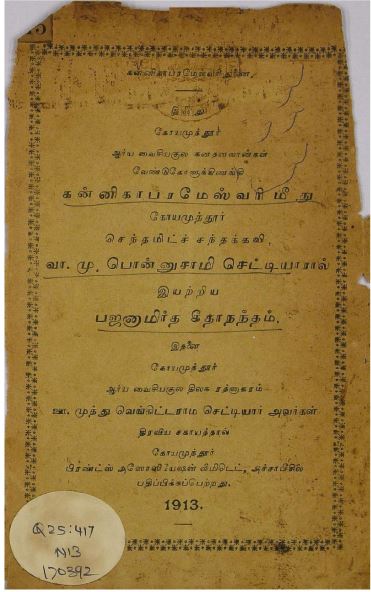 கன்னிகாபரமேஸ்வரி துணை.
இஃது
கோயமுத்தூர்
ஆரிய வைசியகுல கனதனவான்கள்
வேண்டுகோளுக்கிணங்கி
கன்னிகாபரமேஸ்வரி மீது
கோயமுத்தூர்
செந்தமிட்ச் சந்தக்கவி,
வா. மு. பொன்னுசாமி செட்டியாரால்
இயற்றிய
பஜனாமிர்த கீதாநந்தம்.
இதனை
கோயமுத்தூர்
ஆரிய வைசியகுல திலக ரத்னாகரம்
ஊ. முத்து வெங்கிட்டராம செட்டியார் அவர்கள்
திரவிய சகாயத்தால்
கோயமுத்தூர்
பிரண்ட்ஸ் அஸோஷியேஷன் லிமிடெட், அச்சாபீசில்
பதிப்பிக்கப்பெற்றது.
1913.
Q25:417
N13
170392